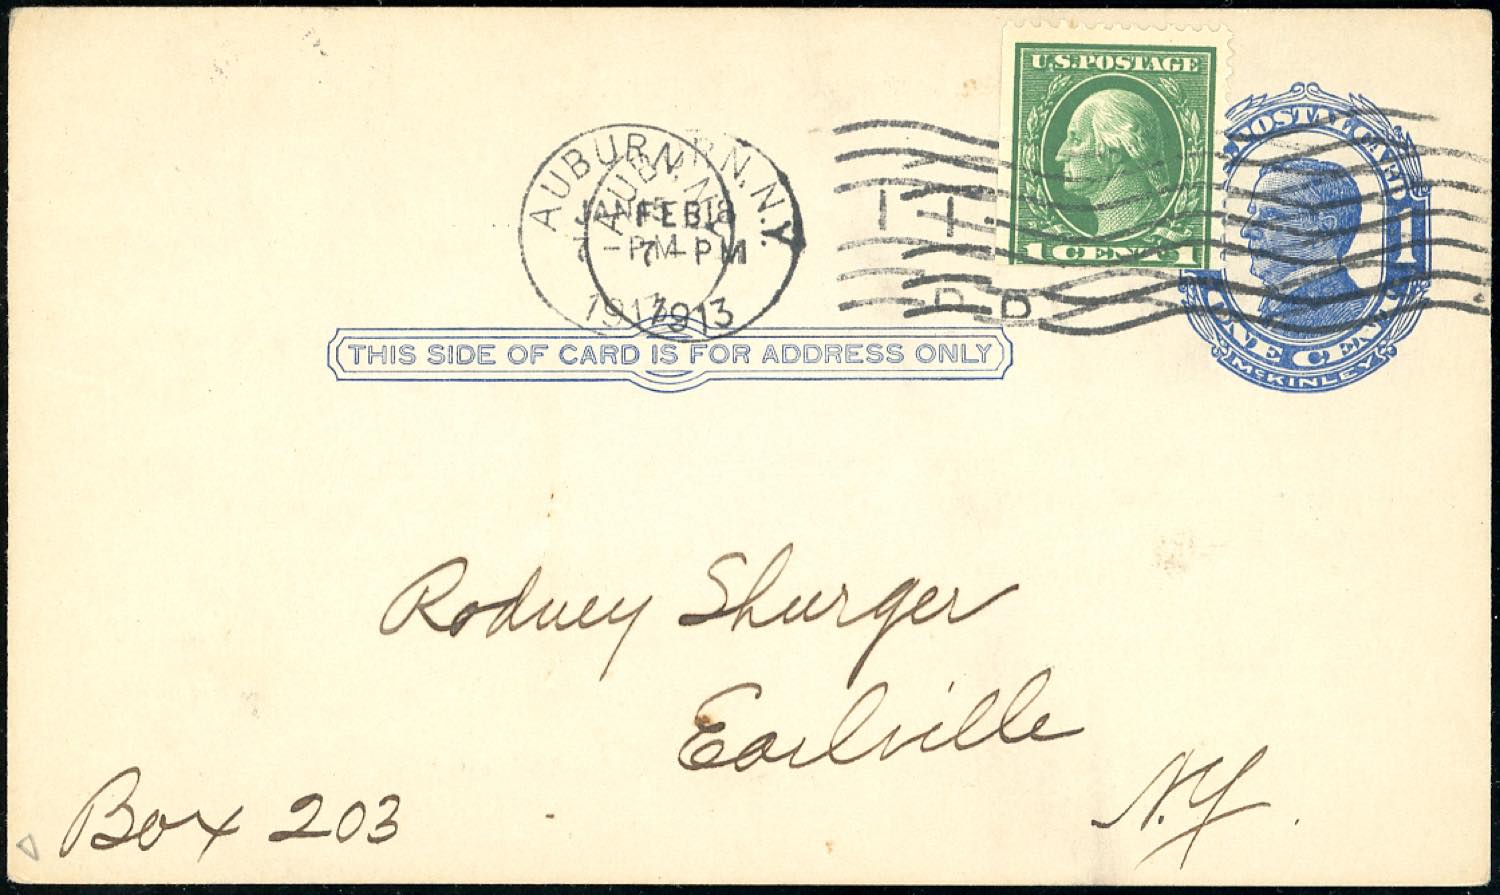 U.S.POSTAGE
1 CENT 1
POSTAL CARD
1
ONE CENT
McKINLEY
AUBURN, N.Y.
JAN 15
7 - PM
1913
AUBURN, N.Y.
FEB 18
7 - PM
1913
THIS SIDE OF CARD IS FOR ADDRESS ONLY
Rodney Shurger
Earlville
N.Y.
Box 203